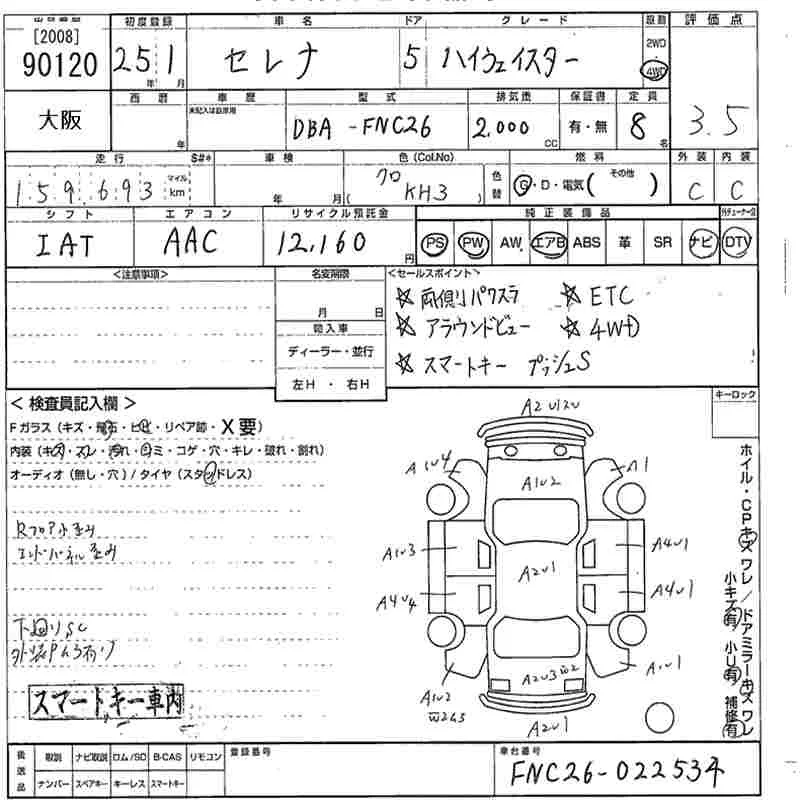 [2008]
90120
初度登録 車名 ドア グレード 駆動 評価点
25 年 1 月 セレナ 5 ハイウェイスター 2WD 4WD 3.5
大阪
西暦 車歴 型式 排気量 保証書 定員
年 未記入は自家用 DBA-FNC26 2,000 CC 有・無 8 名
走行 S#* 車検 色(Col.No) 燃料 外装 内装
159693 マイル km 年 月 クロ ( KH3 ) 色替 G・D・電気( その他 ) C C
シフト エアコン リサイクル預託金 純正装備品
IAT AAC 12,160 円 PS PW AW エアB ABS 革 SR ナビ DTV
<注意事項> 名変期限 <セールスポイント>
月 日
☆両側パワスラ ☆ETC
☆アラウンドビュー ☆4WD
☆スマートキー プッシュS
輸入車
ディーラー・並行
左H・右H
<検査員記入欄>
Fガラス(キズ・飛石・ヒビ・リペア跡・X要)
内装(キズ・スレ・汚れ・ゴミ・コゲ・穴・キレ・破れ・割れ)
オーディオ(無し・穴)/タイヤ(スタッドレス)
Rフロア小歪み
エンドパネル歪み
下廻りSC
スマートキー車内
キーロック
A1U4
A1
A1U2
A1U3
A2U1
A4U1
A4U4
A4U1
A1U2
A1U1
A2U1
ホイル・CPキズワレ/ドアミラーキズワレ
小キズ有 小U有 補修有
後送品 取説 ナビ取説 ロム/SD B-CAS リモコン 登録番号 車台番号
ナンバー スペアキー キーレス スマートキー FNC26-022534